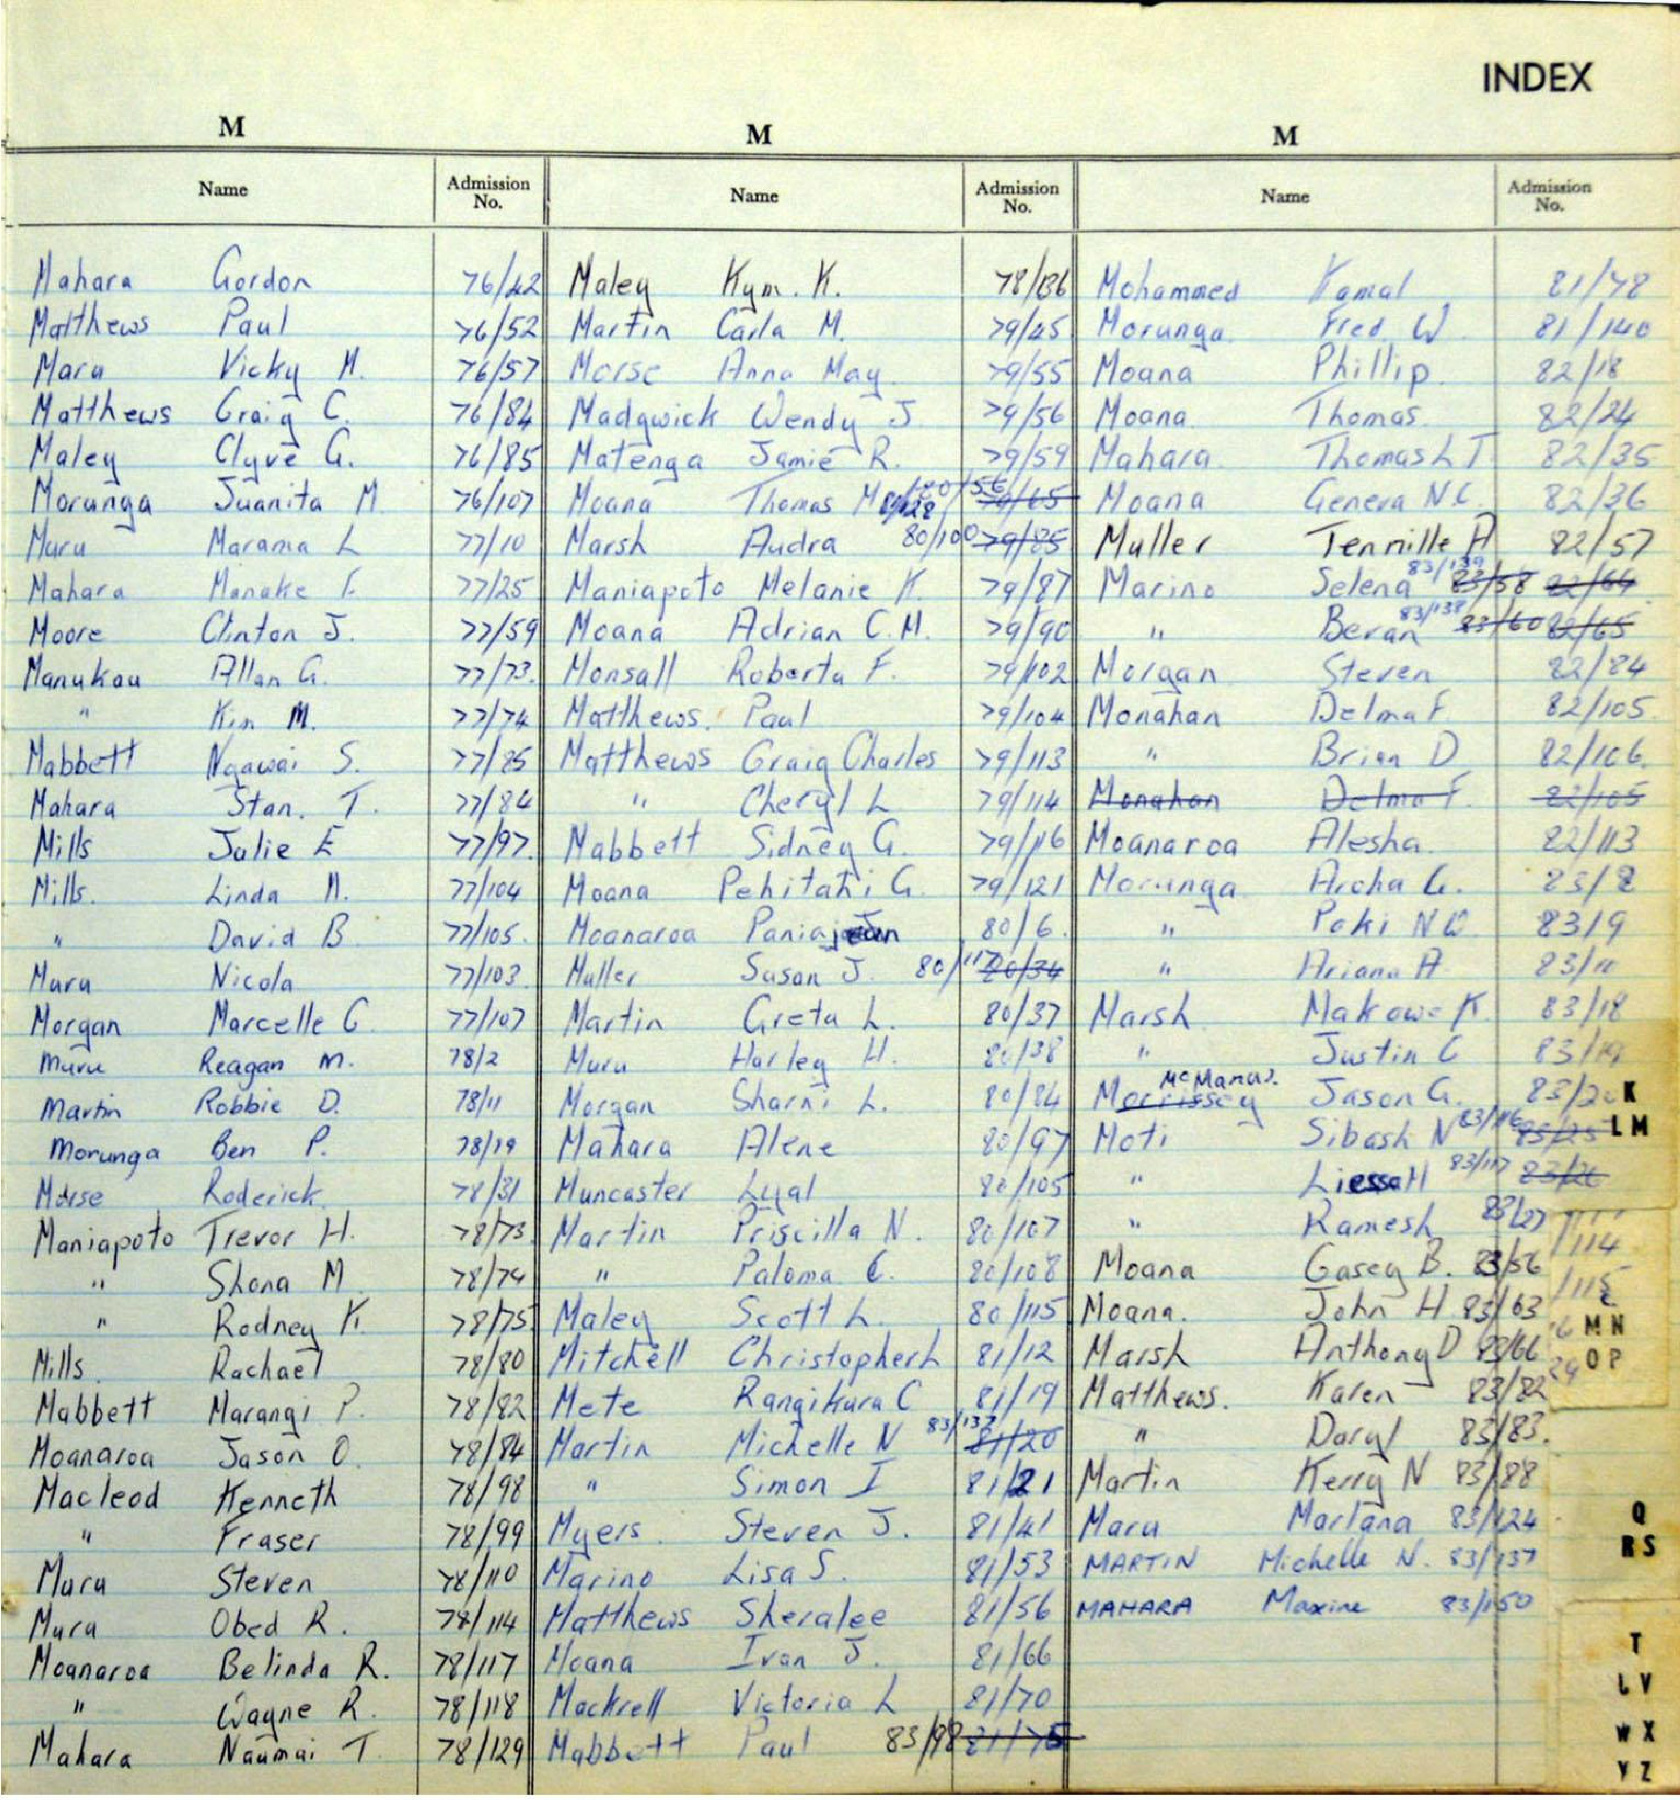 INDEX
M
Name Admission No.
Mahara Gordon 76/42
Matthews Paul 76/52
Mara Vicky M. 76/57
Matthews Craig C. 76/84
Maley Clyve G. 76/85
Morunga Juanita M 76/107
Muru Marama L 77/10
Mahara Manake F. 77/25
Moore Clinton J. 77/59
Manukau Allan G. 77/73.
" Kim M. 77/74
Mabbett Ngawai S. 77/85
Mahara Stan. T. 77/84
Mills Julie E 77/97.
Mills. Linda M. 77/104
" David B 77/105.
Muru Nicola 77/103
Morgan Marcelle C 77/107
Muru Reagan M. 78/2
Martin Robbie D. 78/11
Morunga Ben P. 78/19
Morse Roderick. 78/31
Maniapoto Trevor H. 78/73
" Shona M 78/74
" Rodney K. 78/75
Mills Rachael 78/80
Mabbett Marangi P. 78/82
Moanaroa Jason O. 78/84
Macleod Kenneth 78/98
" Fraser 78/99
Muru Steven 78/110
Muru Obed R. 78/114
Moanaroa Belinda R. 78/117
" Wayne R. 78/118
Mahara Naumai T. 78/129
M
Name Admission No.
Maley Kym. K. 78/136
Martin Carla M. 79/45
Morse Anna May 79/55
Madgwick Wendy J 79/56
Matenga Jamie R. 79/59
Moana Thomas M 80/56 79/65
Marsh Audra 80/100 79/85
Maniapoto Melanie K. 79/87
Moana Adrian C.M. 79/90
Monsall Roberta F. 79/102
Matthews. Paul 79/104
Matthews Craig Charles 79/113
" Cheryl L 79/114
Mabbett Sidney G. 79/116
Moana Pehitahi G. 79/121
Moanaroa Pania Jean 80/6.
Muller Susan J. 80/117 80/34
Martin Greta L. 80/37
Muru Harley H. 80/38
Morgan Sharni L. 80/84
Mahara Alene 80/97
Muncaster Lyal 80/105
Martin Priscilla N. 80/107
" Paloma C. 80/108
Maley Scott L. 80/115
Mitchell Christopher L 81/12
Mete Rangikura C 81/19
Martin Michelle N 83/137 81/20
" Simon I 81/21
Myers Steven J. 81/41
Marino Lisa S. 81/53
Matthews Sheralee 81/56
Moana Ivan J. 81/66
Mackrell Victoria L 81/70
Mabbett Paul 83/98 81/75
M
Name Admission No.
Mohammed Kamal 81/78
Morunga Fred W 81/140
Moana Phillip. 82/18
Moana Thomas. 82/24
Mahara Thomas L T. 82/35
Moana Geneva N.C. 82/36
Muller Tennille A 82/57
Marino Selena 83/139 83/58 82/64
" Bevan 83/138 83/60 82/65
Morgan Steven 82/84
Monahan Delma F. 82/105
" Brian D 82/106.
Monahan Delma F. 82/105
Moanaroa Alesha. 82/113
Morunga Aroha G. 83/8
" Poki N W 83/9
" Ariana A 83/11
Marsh Makowe K. 83/18
" Justin C 83/19
McManus.
Morrissey Jason G. 83/20
Moti Sibash N 83/116 83/25
" Liessa H 83/117 83/26
" Ramesh 83/27
Moana Casey B. 83/56
Moana. John H. 83/63
Marsh Anthony D 83/66
Matthews. Karen 83/82
" Daryl 83/83.
Martin Kerry N 83/88
Maru Marlana 83/124
MARTIN Michelle N. 83/137
MAHARA Maxine 83/150
K
L M
/114
/115
M N
O P
Q
R S
T
L V
W X
Y Z